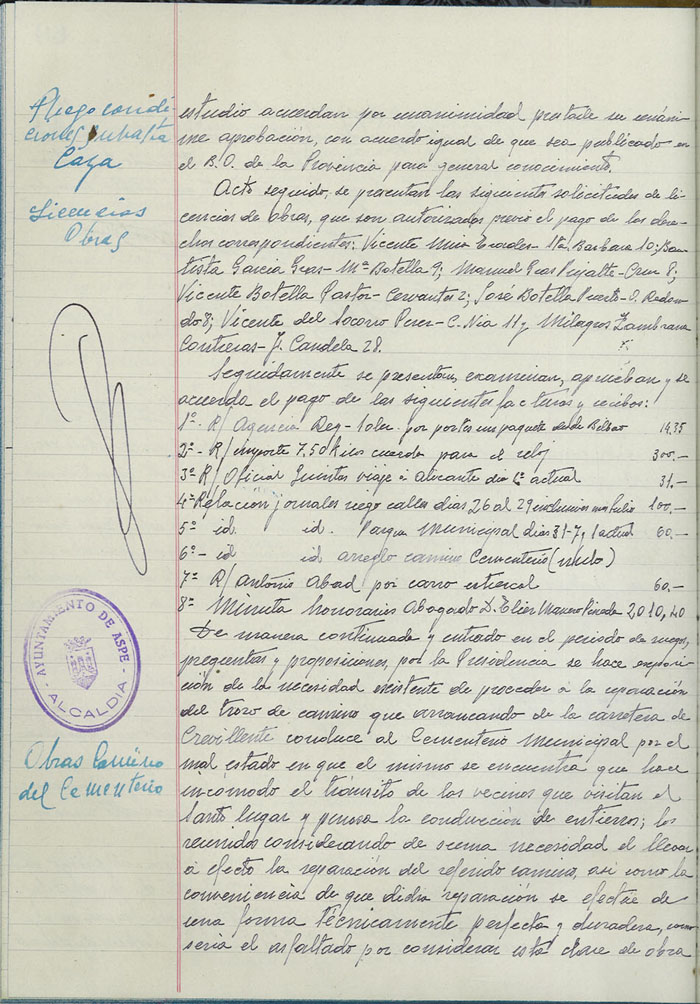 Pliego condi-
ciones subasta
Caza
Licencias
Obras
AYUNTAMIENTO DE ASPE
ALCALDIA
Obras Camino
del Cementerio
estudio acuerdan por unanimidad prestale su unáni-
me aprobación, con acuerdo igual de que sea publicado en
el B.O. de la Provincia para general conocimiento.
Acto seguido, se presentan las siguientes solicitudes de li-
cencias de obras, que son autorizadas previo el pago de los dere-
chos correspondientes: Vicente Mira - Sta. Barbara 10; Bau-
tista Garcia Gras - Mª Botella 9; Manuel Gras Pujalte - Cruz 8;
Vicente Botella Pastor - Cervantes 2; José Botella Puerto - O. Redon-
do 8; Vicente del Socorro Perez - C. Nia 11 y Milagros Zambrana
Contreras - J. Candela 28.
Seguidamente se presentan, examinan, aprueban y se
acuerda el pago de las siguientes facturas y recibos:
1º - R/ Agencia por portes un paquete desde Bilbao 14.35
2º - R/ importe 7.50 kilos cuerda para el reloj 300.-
3º R/ Oficial Quintas viaje a Alicante dia 1º actual 31.-
4º Relación jornales riego calles dias 26 al 29 inclusives Julio 100.-
5º id. id. Parque Municipal dias 31-7, 1 actual 60.-
6º - id id arreglo camino Cementerio (nulo)
7º R/ Antonio Abad / por carro estiercol 60.-
8º Minuta honorarios Abogado D. Manero Pineda 2010,40
De manera continuada y entrado en el periodo de ruegos,
preguentas y proposiciones, por la Presidencia se hace exposi-
ción de la necesidad existente de proceder a la reparación
del trozo de camino que arrancando de la carretera de
Crevillente conduce al Cementerio Municipal por el
mal estado en que el mismo se encuentra que hace
incómodo el tránsito de los vecinos que visitan el
Santo lugar y penosa la conducción de entierros; los
reunidos considerando de suma necesidad el llevar
a efecto la reparación del referido camino, asi como la
conveniencia de que dicha reparación se efectúe de
una forma técnicamente perfecta y duradera, como
seria el asfaltado por considerar esta clase de obra